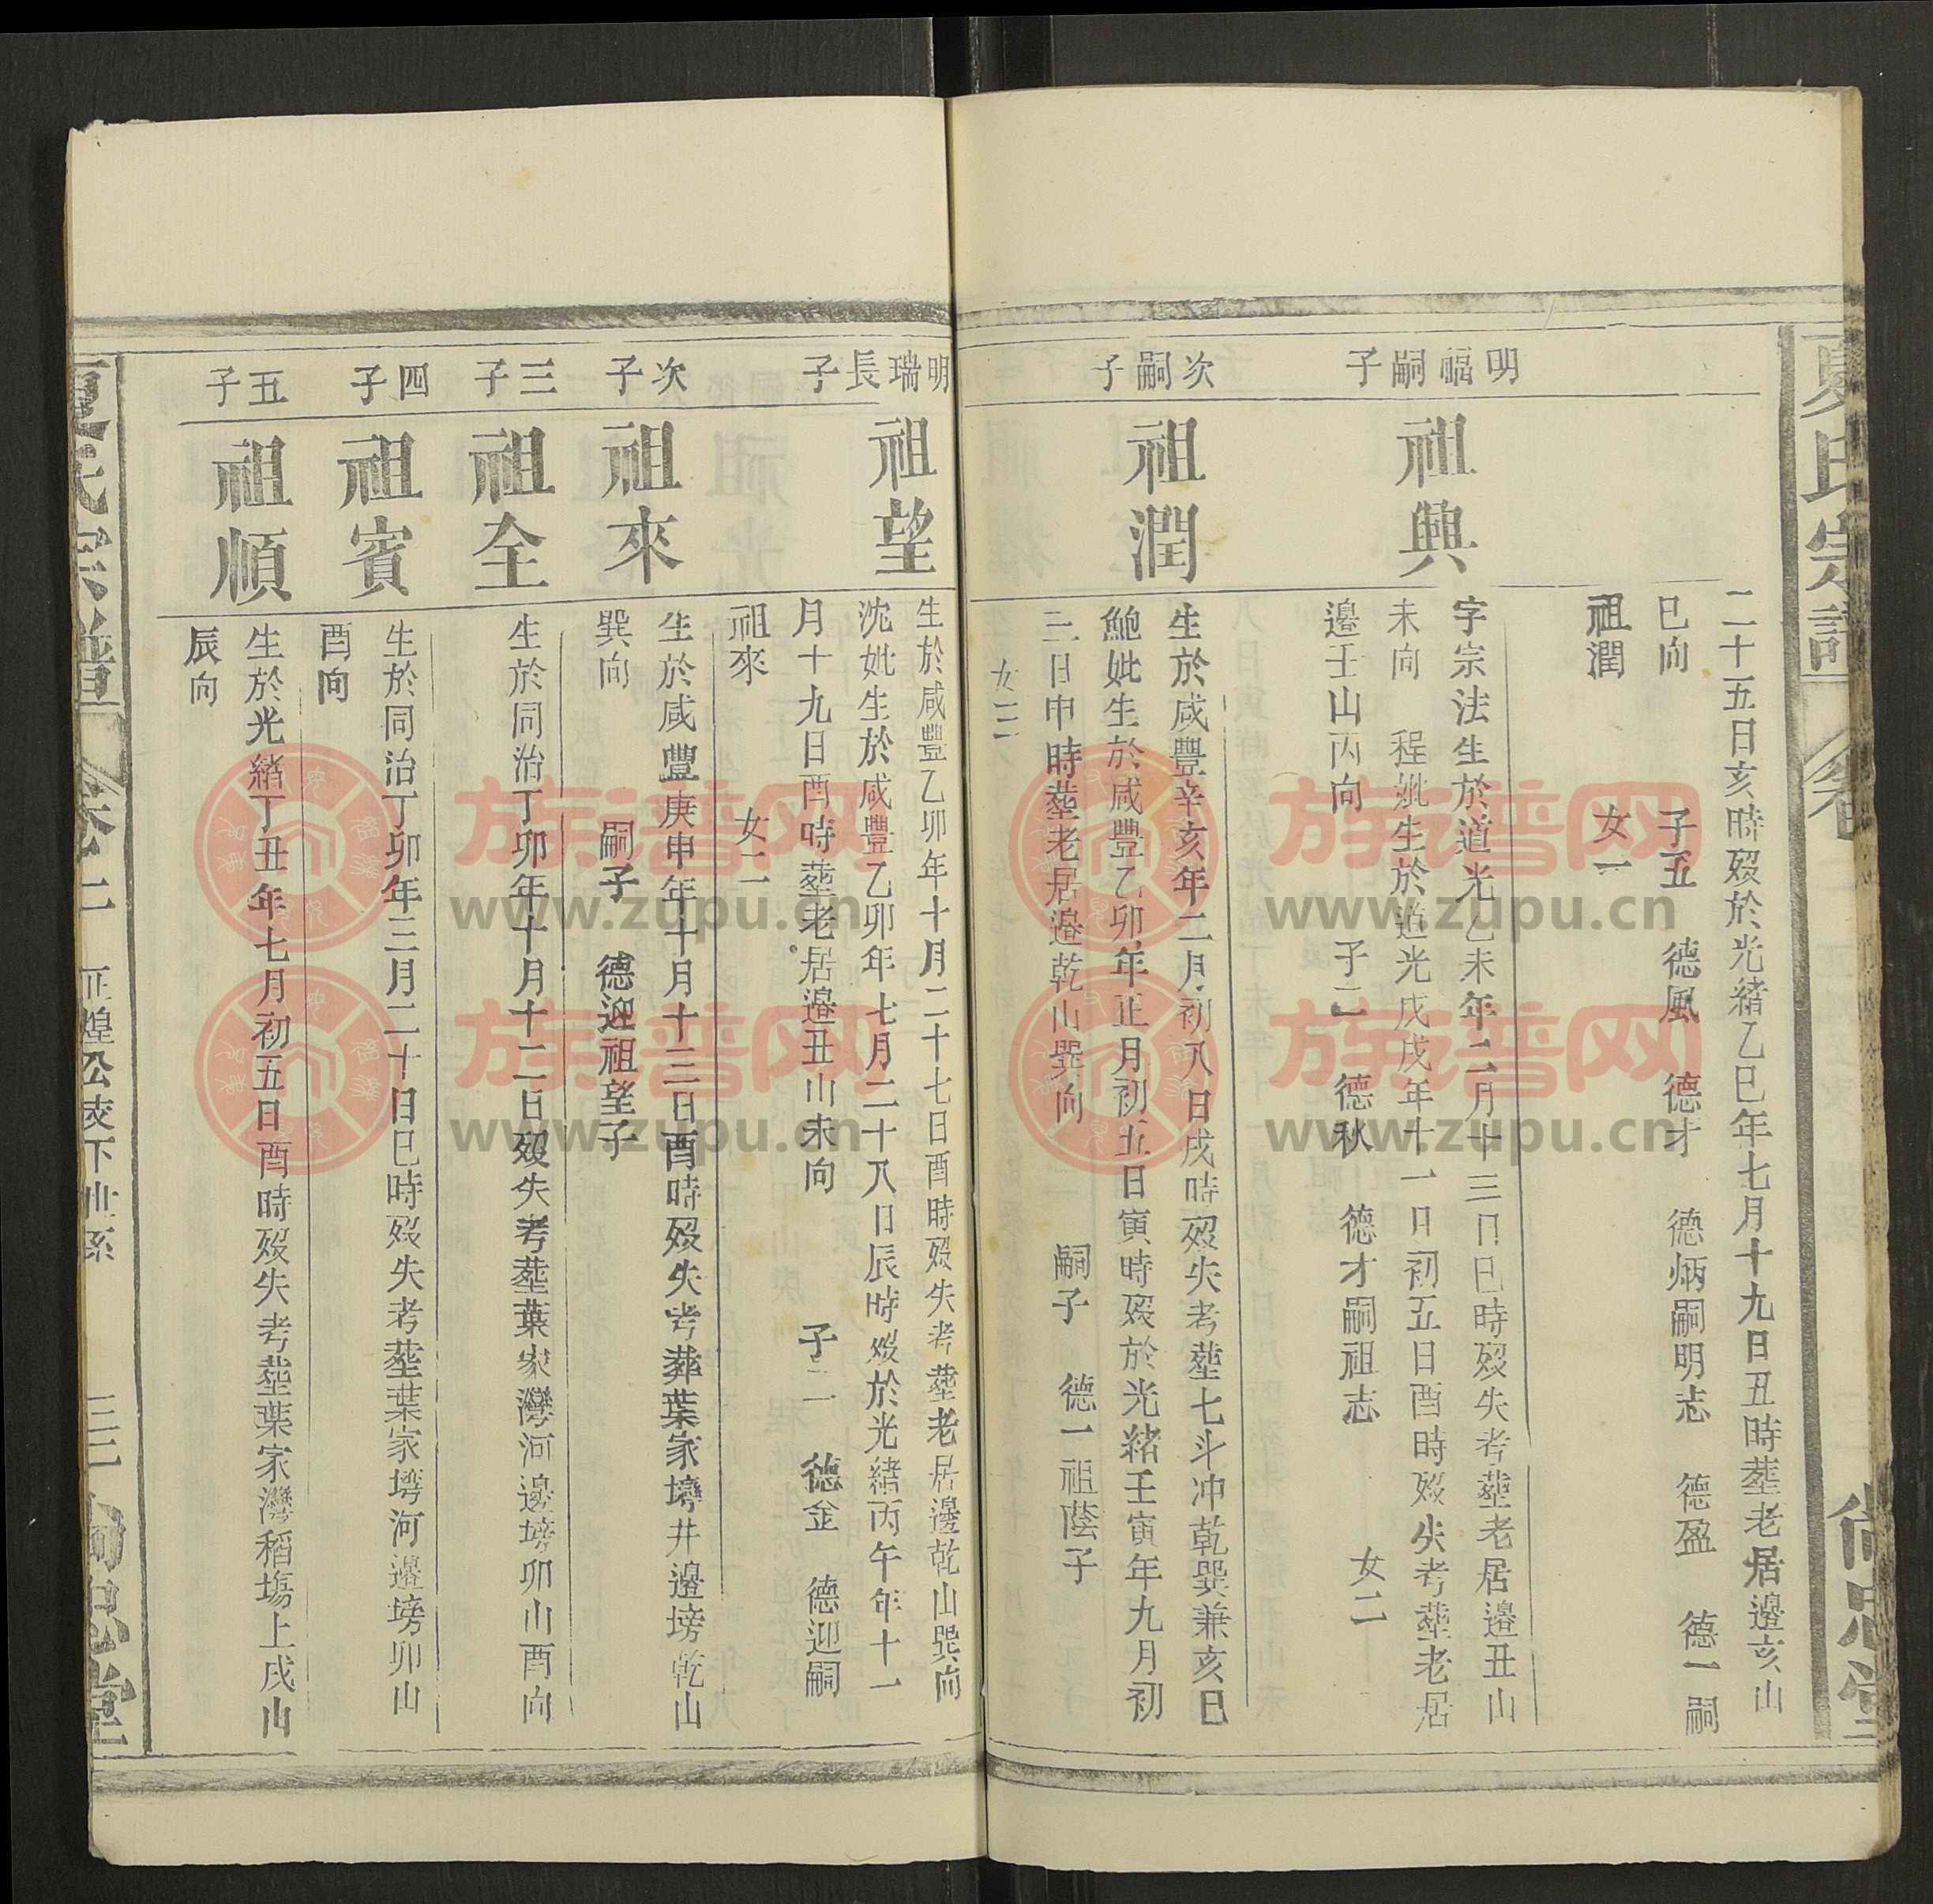 夏氏宗譜
卷
尚忠堂
二十五日亥時歿於光緒乙巳年七月十九日丑時塟老居邉亥山
巳向　子五　德風　德才　德炳嗣明志　德盈　德一嗣
祖潤　女一
明福嗣子
祖興
字宗法生於道光乙未年二月十三日巳時歿失考塟老居邉丑山
未向　程妣生於道光戊戌年十一日初五日酉時歿失考塟老居
邉壬山丙向　子二　德秋　德才嗣祖志　女二
次嗣子
祖潤
生於咸豐辛亥年二月初八日戌時歿失考塟七斗冲乾巽兼亥巳
鮑妣生於咸豐乙卯年正月初五日寅時歿於光緒壬寅年九月初
三日申時塟老居邉乾山巽向　嗣子　德一祖蔭子
女三
明瑞長子
祖望
生於咸豐乙卯年十月二十七日酉時歿失考塟老居邉乾山巽向
沈妣生於咸豐乙卯年七月二十八日辰時歿於光緒丙午年十一
月十九日酉時塟老居邉丑山未向　子二　德金　德迎嗣
祖來　女二
次子
祖來
生於咸豐庚申年十月十三日酉時歿失考葬葉家塆井邉塝乾山
巽向　嗣子　德迎祖望子
三子
祖全
生於同治丁卯年十月十二日歿失考塟葉家灣河邉塝卯山酉向
四子
祖賓
生於同治丁卯年三月二十日巳時歿失考塟葉家塆河邉塝卯山
酉向
五子
祖順
生於光緒丁丑年七月初五日酉時歿失考塟葉家灣稻塲上戌山
辰向
夏氏宗譜
卷二
公支下世系
三二
尚忠堂
族谱网
www.zupu.cn
族谱网
www.zupu.cn
族谱网
www.zupu.cn
族谱网
www.zupu.cn